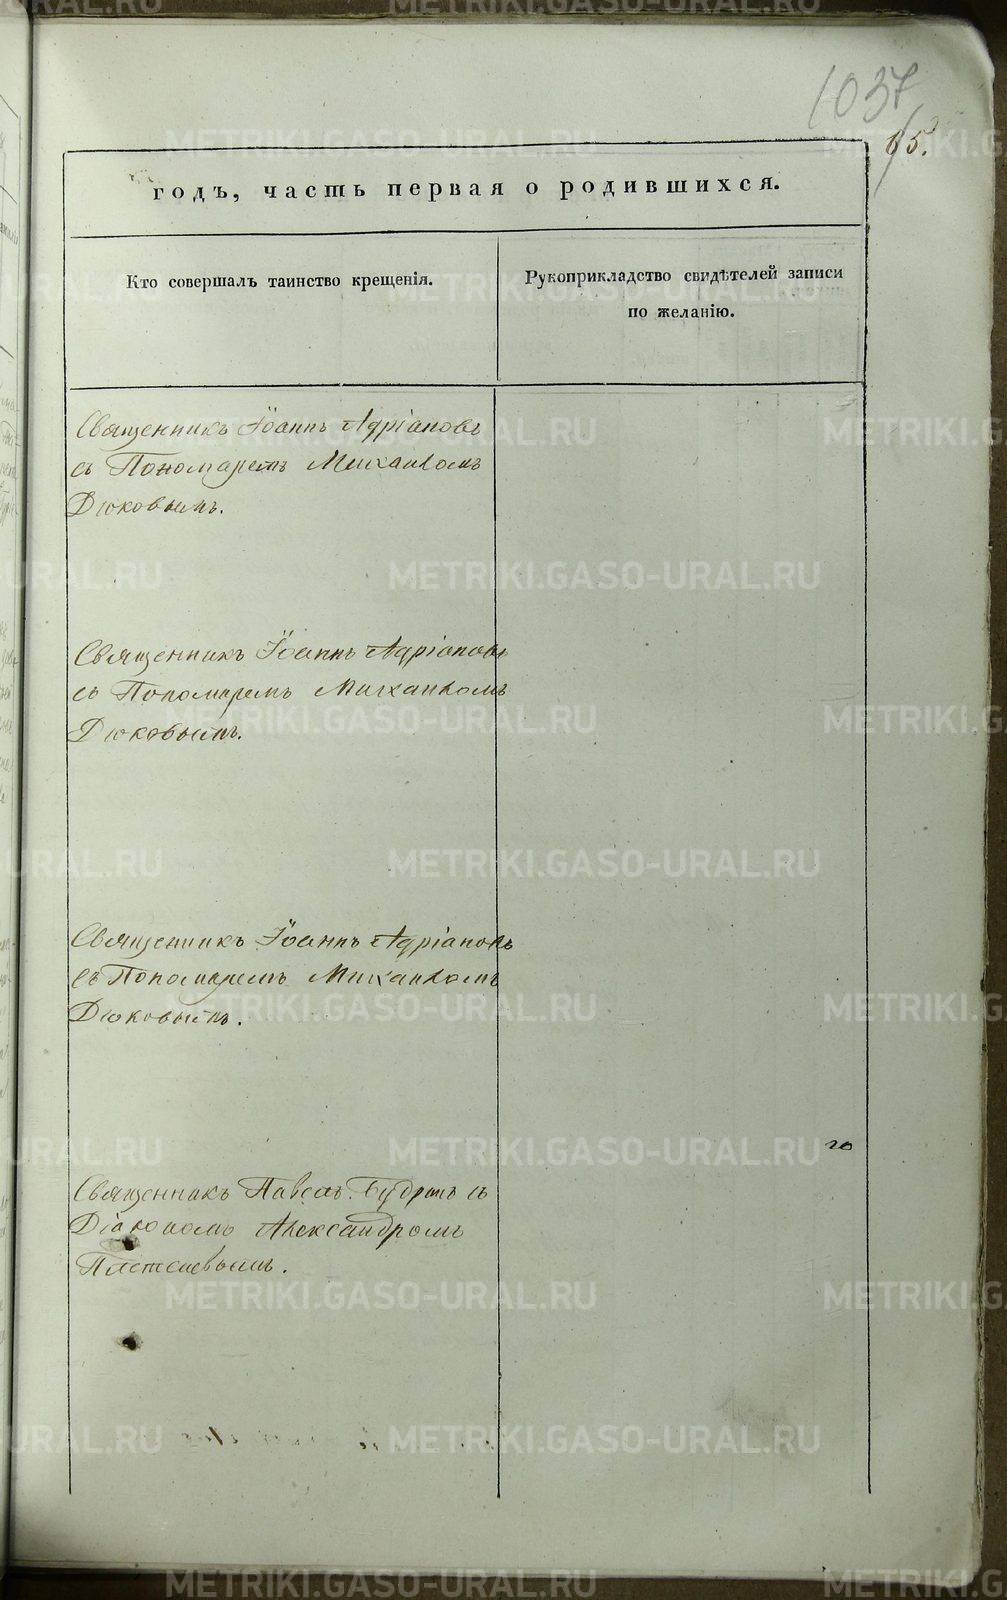 1037
65.
годъ, часть первая о родившихся.
Кто совершалъ таинство крещенія.
Рукоприкладство свидѣтелей записи
по желанію.
Священникъ Іоаннъ Адріановъ
съ Пономаремъ Михаиломъ
Дюковымъ.
Священникъ Іоаннъ Адріановъ
съ Пономаремъ Михаиломъ
Дюковымъ.
Священникъ Іоаннъ Адріановъ
съ Пономаремъ Михаиломъ
Дюковымъ.
Священникъ Павелъ съ
Діакономъ Александромъ
METRIKI.GASO-URAL.RU